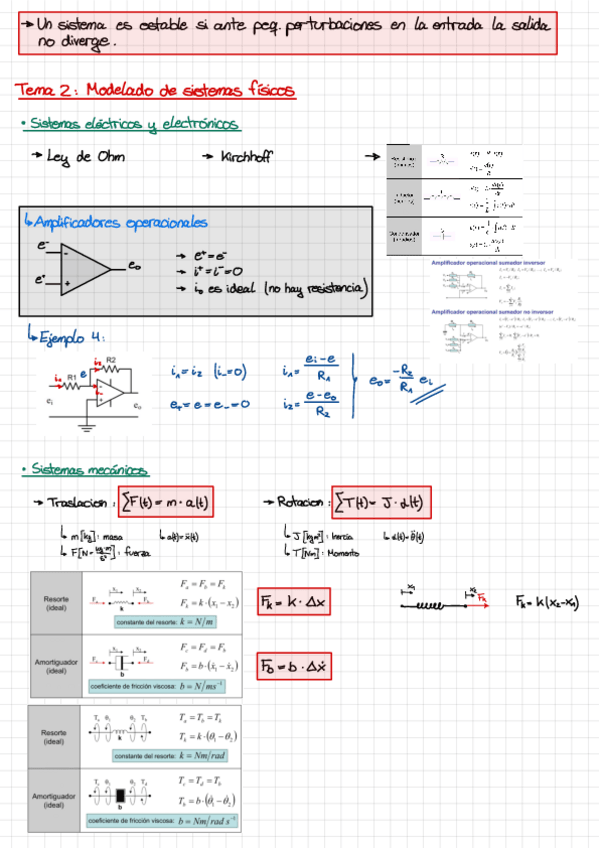 → Un sistema es estable si ante peq. perturbaciones en la entrada la salida
no diverge.
Tema 2: Modelado de sistemas físicos
• Sistemas eléctricos y electrónicos
→ Ley de Ohm → Kirchhoff →
↳ Amplificadores operacionales
e⁻
e⁺
e₀
→ e⁺ = e⁻
→ i⁺ = i⁻ = 0
→ i₀ es ideal (no hay resistencia)
Amplificador operacional sumador inversor
Amplificador operacional sumador no inversor
↳ Ejemplo 4:
R2
R1
e
eᵢ
e₀
i₁ = i₂ (i₋ = 0)
i₁ = (eᵢ - e)/R₁
e₊ = e = e₋ = 0
i₂ = (e - e₀)/R₂
e₀ = -R₂/R₁ eᵢ
• Sistemas mecánicos
→ Traslacion: ΣF(t) = m · a(t) → Rotacion: ΣT(t) = J · α(t)
↳ m [kg]: masa ↳ a(t) = ẍ(t) ↳ J [kgm²]: Inercia ↳ α(t) = θ̈(t)
↳ F [N = kg·m/s²]: fuerza ↳ T [Nm]: Momento
Resorte
(ideal)
x₁ x₂
Fₐ k F_b
Fₐ = F_b = Fₖ
Fₖ = k·(x₁ − x₂)
constante del resorte: k = N/m
Fₖ = k · Δx
x₁ x₂ Fₖ
Fₖ = k(x₂-x₁)
Amortiguador
(ideal)
b
F_c = F_d = F_b
F_b = b·(ẋ₁ − ẋ₂)
coeficiente de fricción viscosa: b = N/ms⁻¹
F_b = b · Δẋ
Resorte
(ideal)
Tₐ θ₁ θ₂ T_b
k
Tₐ = T_b = Tₖ
Tₖ = k·(θ₁ − θ₂)
constante del resorte: k = Nm/rad
Amortiguador
(ideal)
T_c θ₁ θ₂ T_d
b
T_c = T_d = T_b
T_b = b·(θ̇₁ − θ̇₂)
coeficiente de fricción viscosa: b = Nm/rad s⁻¹